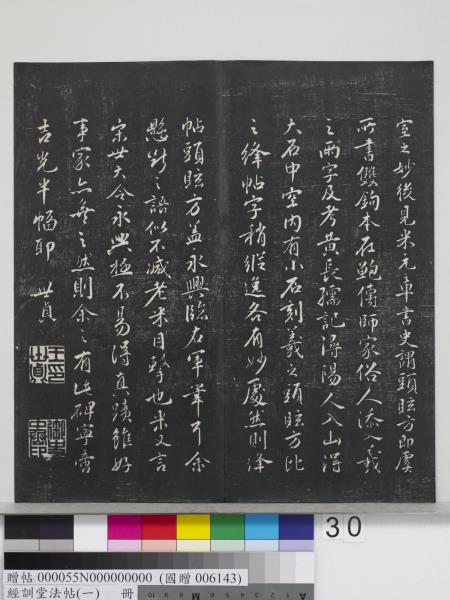 室之妙後見米元章書史謂頭眩方即虞
所書雙鉤本在鮑傳師家俗人添入羲
之兩字及考黃長孺記潯陽人入山得
大石中空內有小石刻羲之頭眩方比
之絳帖字稍縱逸各有妙處然則絳
帖頭眩方蓋永興臨右軍筆乃余
懸斷之語似不減老米目擊也米又言
宋世大令永興極不易得真蹟雖好
事家亦無之然則余之有此碑寧啻
吉光半幅耶 世貞
30
贈帖 000055N000000000 (國贈 006143)
經訓堂法帖(一) 冊